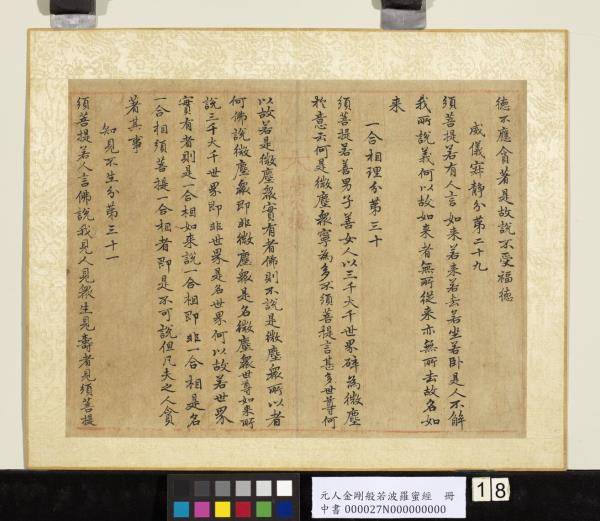 德不應貪著是故說不受福德
威儀寂静分第二十九
須菩提若有人言如来若来若去若坐若卧是人不解
我所說義何以故如来者無所從来亦無所去故名如
来
一合相理分第三十
須菩提若善男子善女人以三千大千世界碎為微塵
扵意云何是微塵衆寧為多不須菩提言甚多世尊何
以故若是微塵衆實有者佛則不說是微塵衆所以者
何佛說微塵衆即非微塵衆是名微塵衆世尊如来所
說三千大千世界即非世界是名世界何以故若世界
實有者則是一合相如来說一合相即非一合相是名
一合相須菩提一合相者即是不可說但凡夫之人貪
著其事
知見不生分第三十一
須菩提若人言佛說我見人見衆生見壽者見須菩提
元人金剛般若波羅蜜經 冊
中書 000027N000000000
18